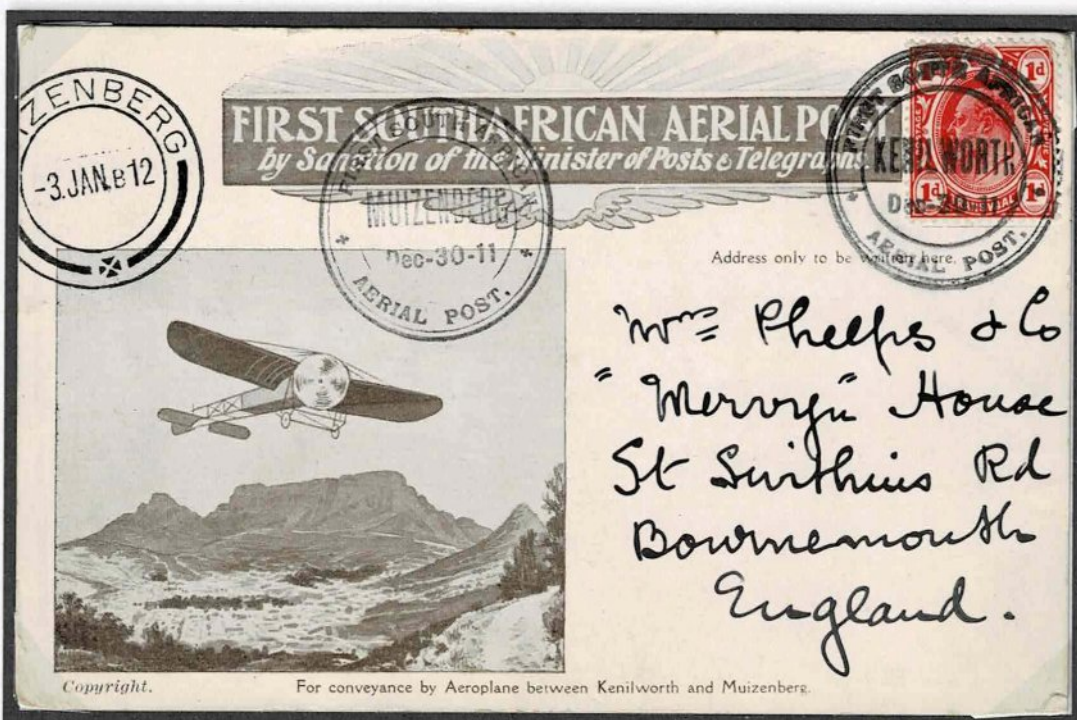 FIRST SOUTH AFRICAN AERIAL POST
by Sanction of the Minister of Posts & Telegraphs.
IZENBERG
-3.JAN.B12
FIRST SOUTH AFRICAN
MUIZENBERG
Dec-30-11
AERIAL POST.
FIRST SOUTH AFRICAN
KENILWORTH
AERIAL POST.
1d 1d
1d 1d
Address only to be written here.
Wm Phelps & Co
"Mervyn" House
St Swithins Rd
Bournemouth
England.
Copyright.
For conveyance by Aeroplane between Kenilworth and Muizenberg.